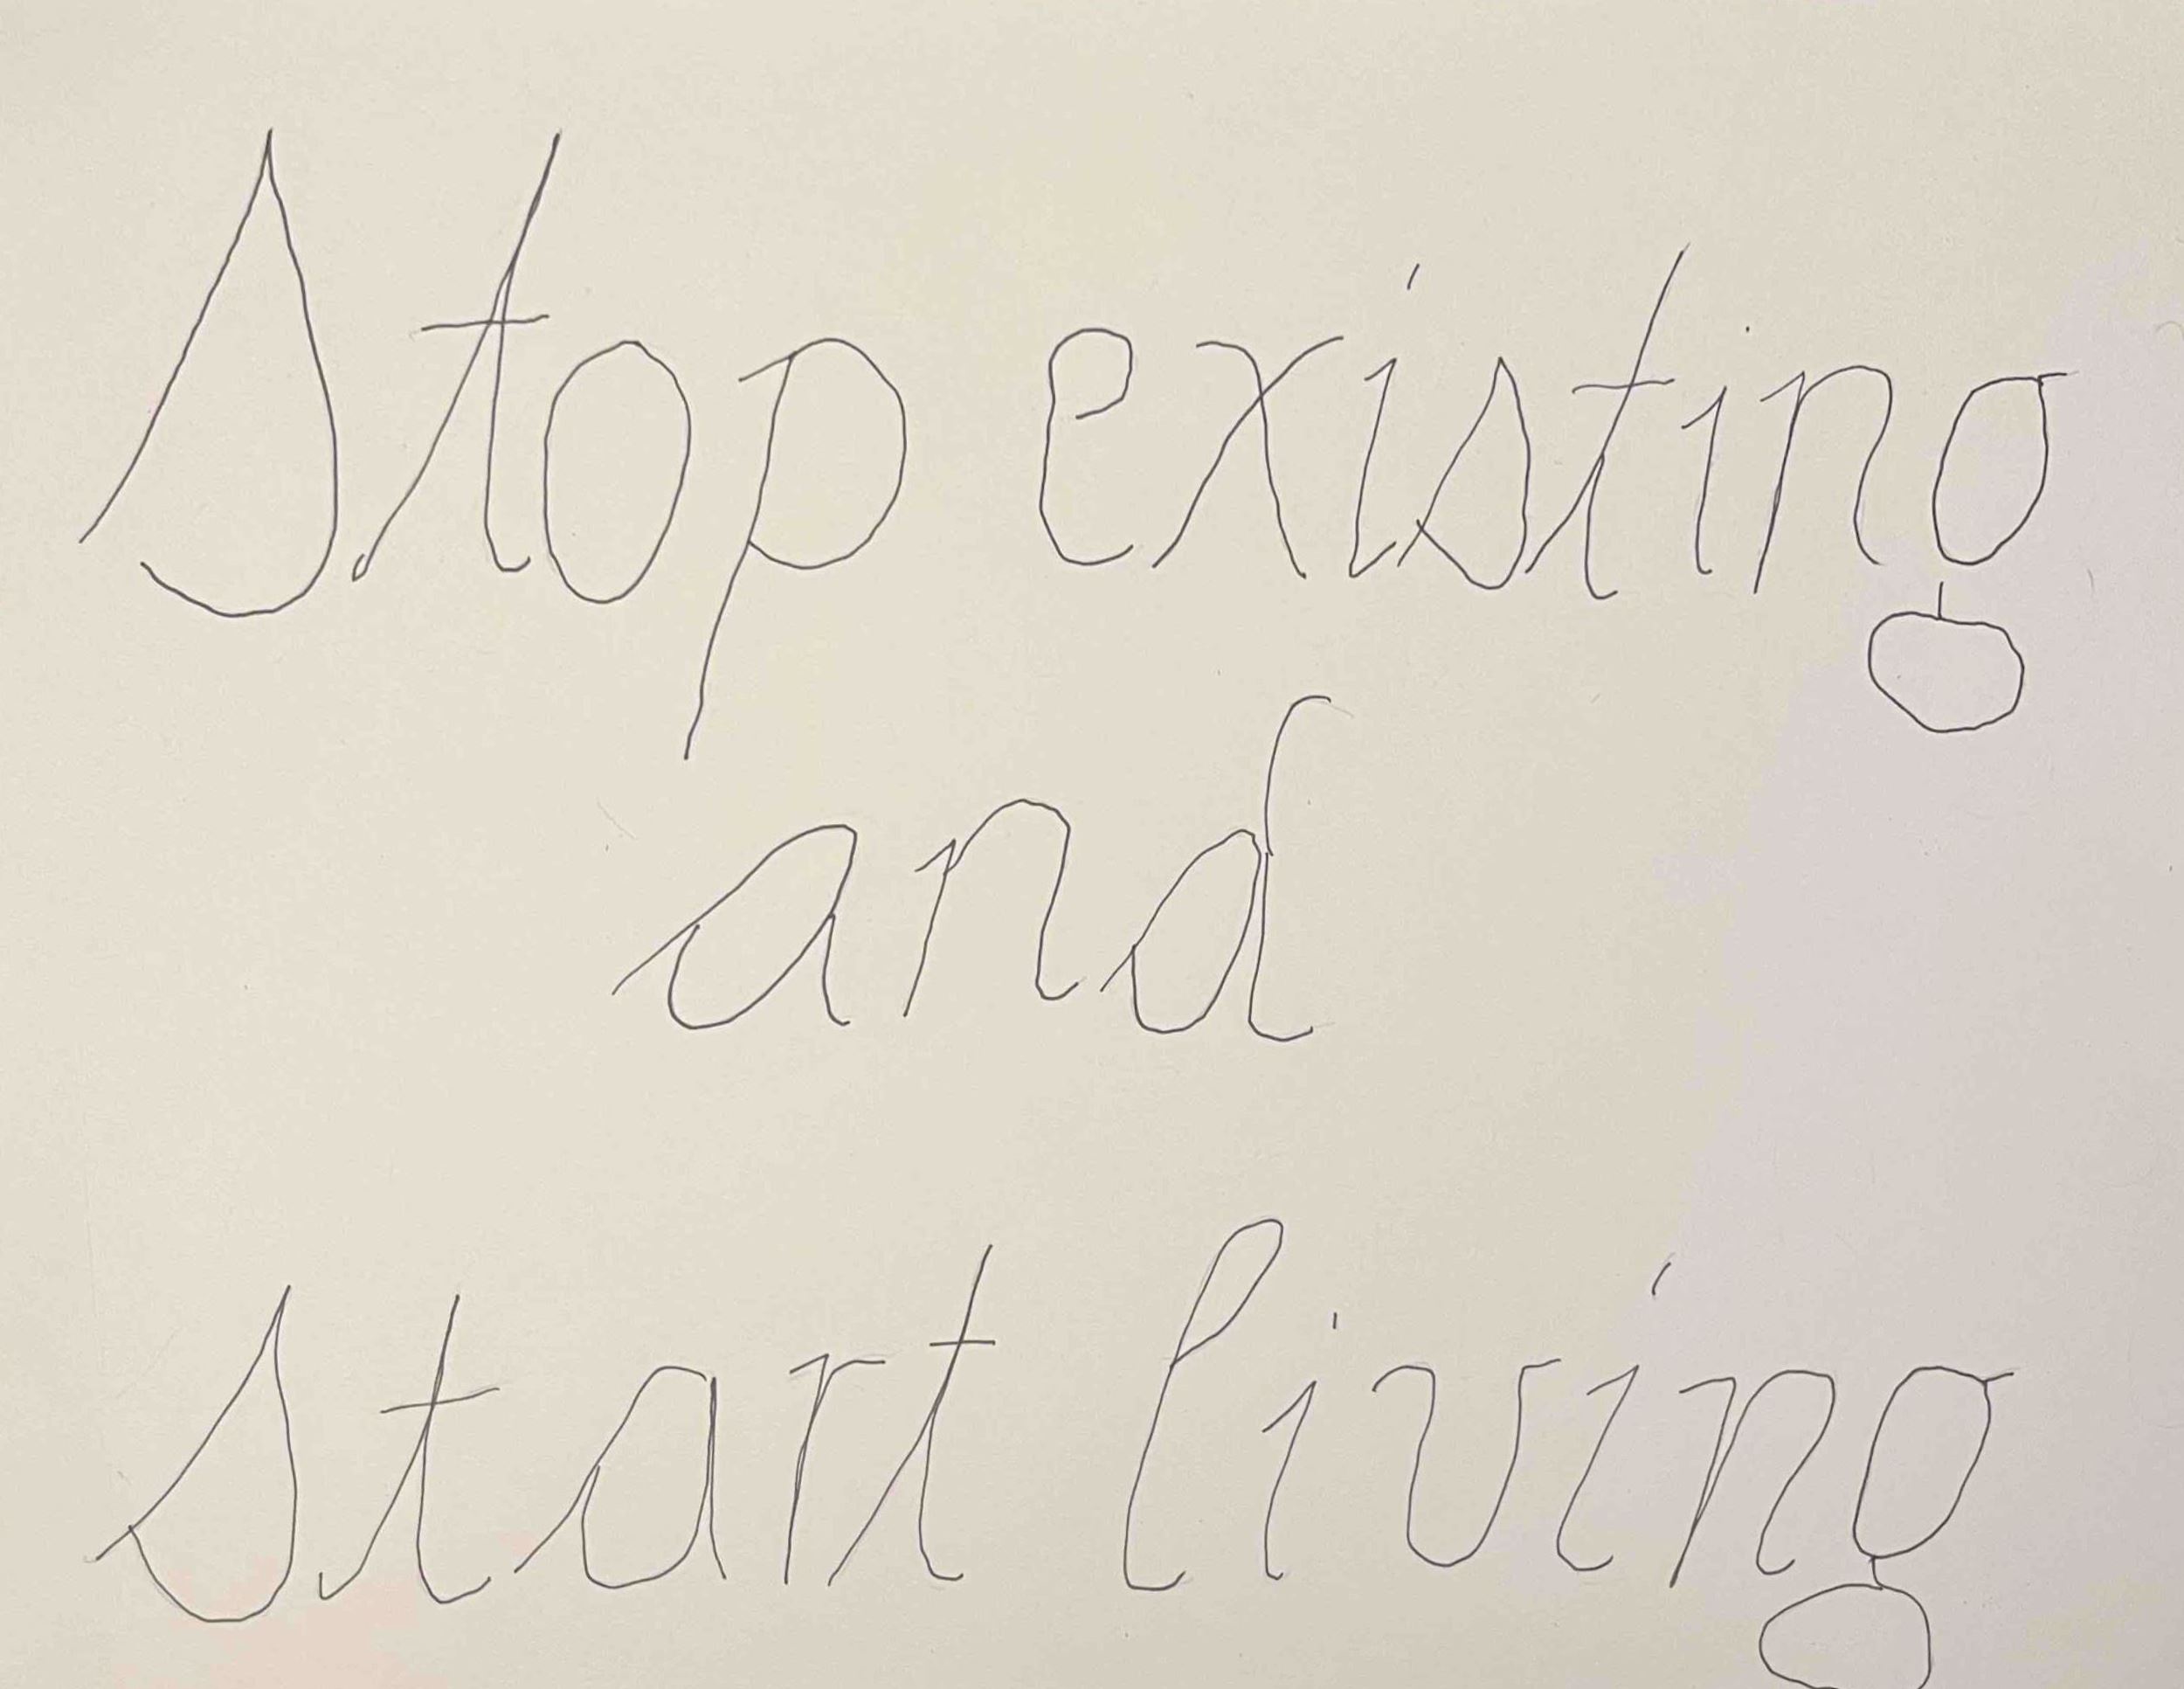 Stop existing
and
start living